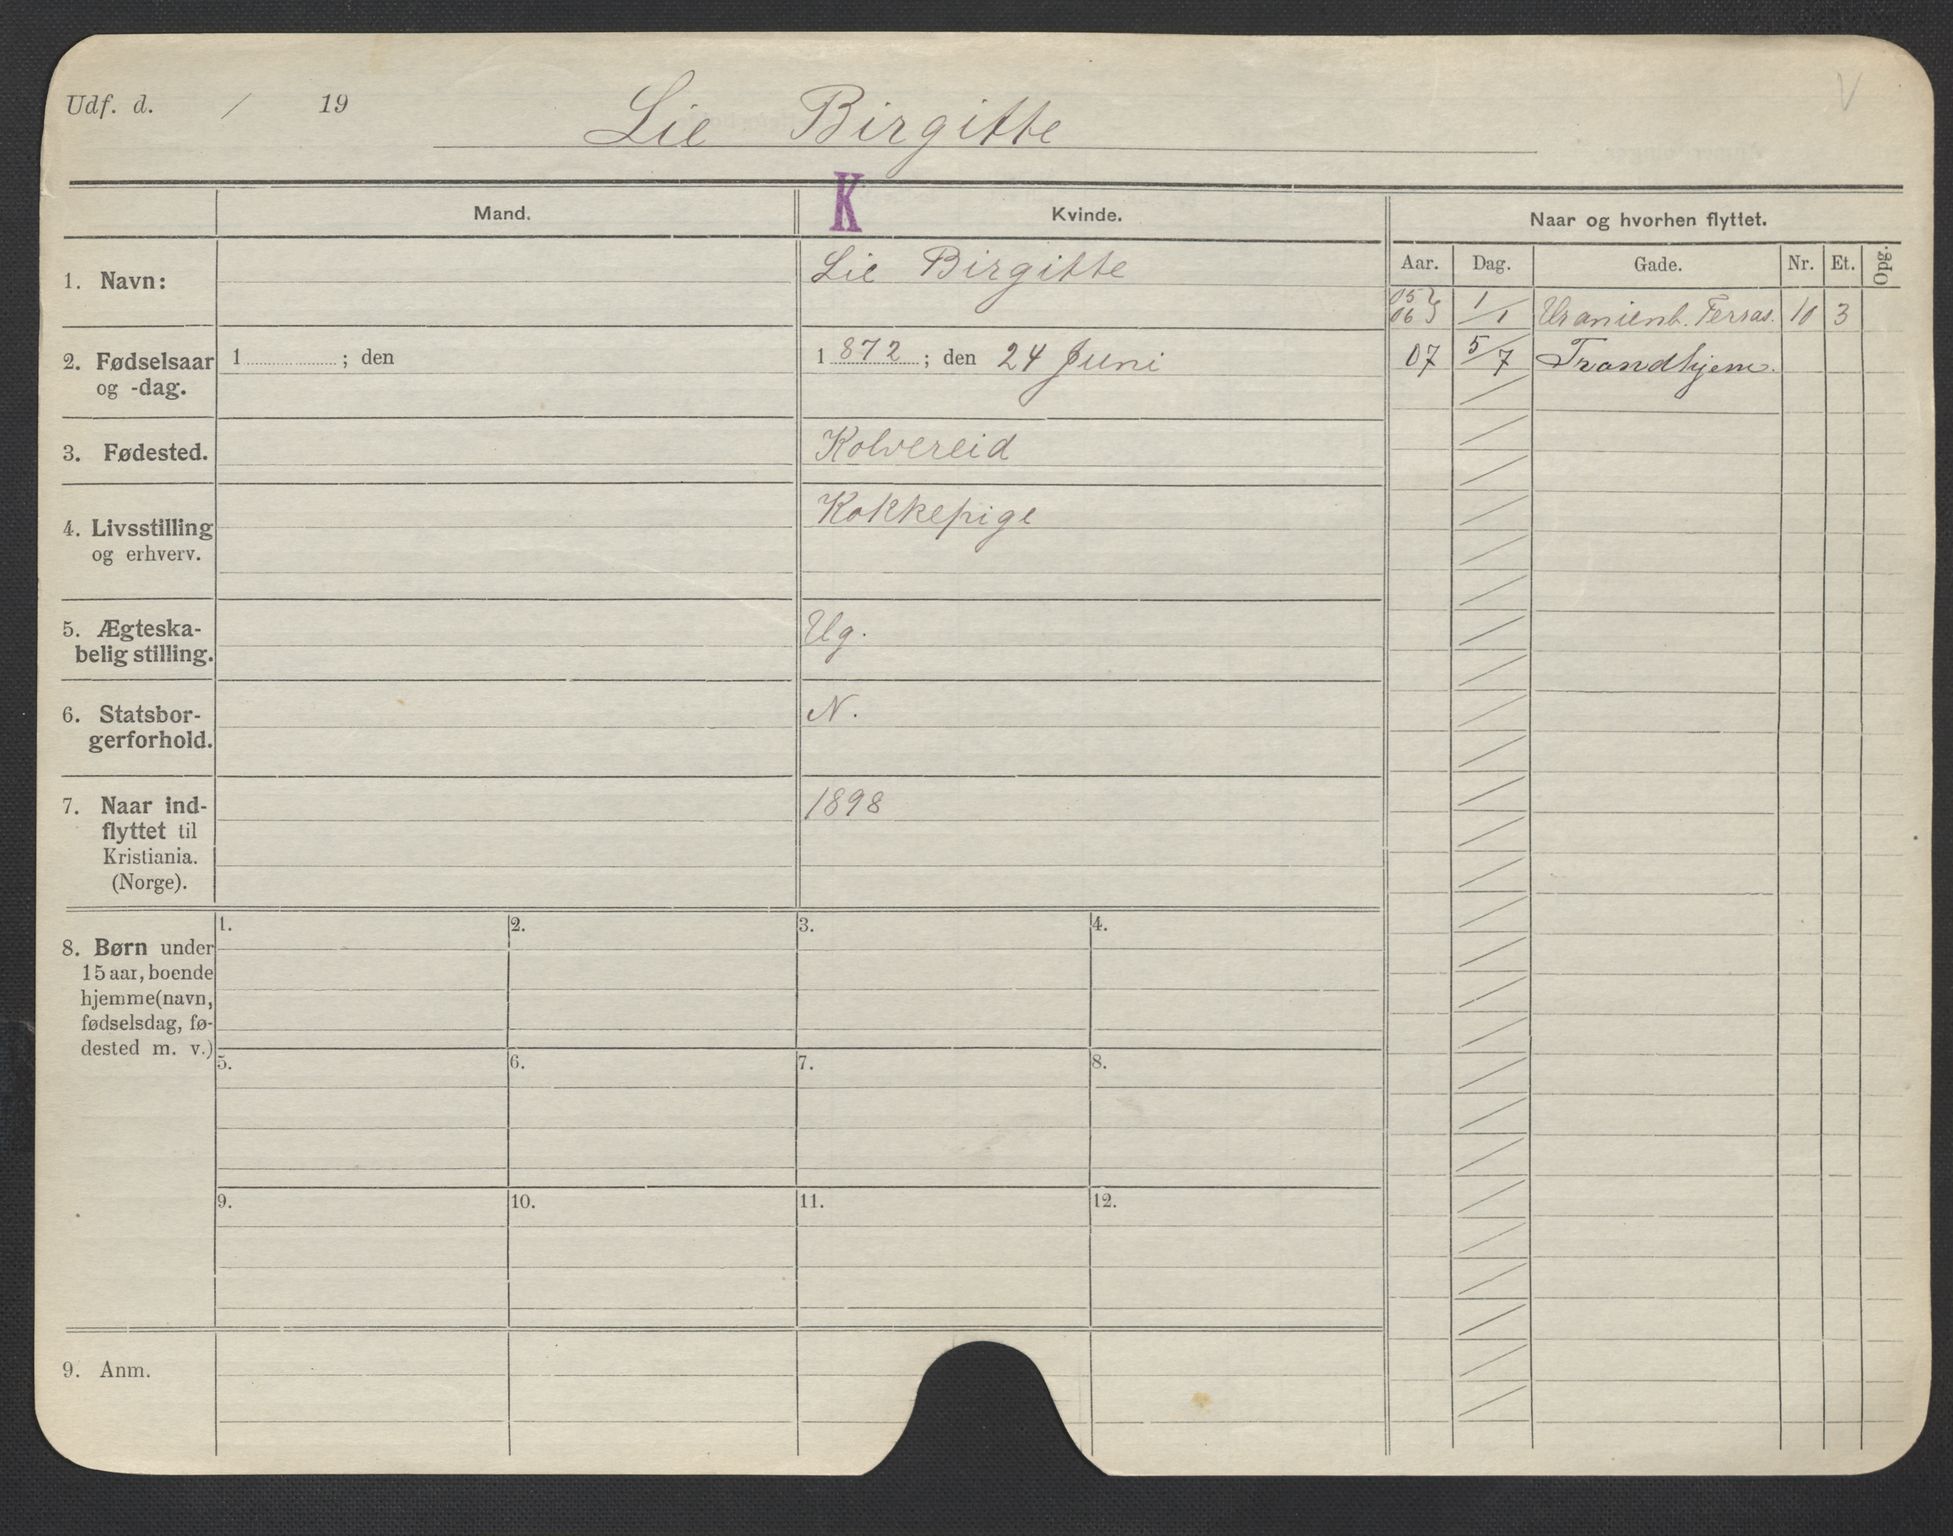 Udf. d. / 19
Lie Birgitte
V
Mand.
K
Kvinde.
Naar og hvorhen flyttet.
Aar. Dag. Gade. Nr. Et. Opg.
1. Navn:
Lie Birgitte
05 } 1/1 Uranienb. Terras. 10 3
06
2. Fødselsaar
og -dag.
1 ; den
1 872 ; den 24 Juni
07 5/7 Trondhjem.
3. Fødested.
Kolvereid
4. Livsstilling
og erhverv.
Kokkepige
5. Ægteska-
belig stilling.
Ug.
6. Statsbor-
gerforhold.
N.
7. Naar ind-
flyttet til
Kristiania.
(Norge).
1898
8. Børn under
15 aar, boende
hjemme (navn,
fødselsdag, fø-
dested m. v.)
1. 2. 3. 4.
5. 6. 7. 8.
9. 10. 11. 12.
9. Anm.